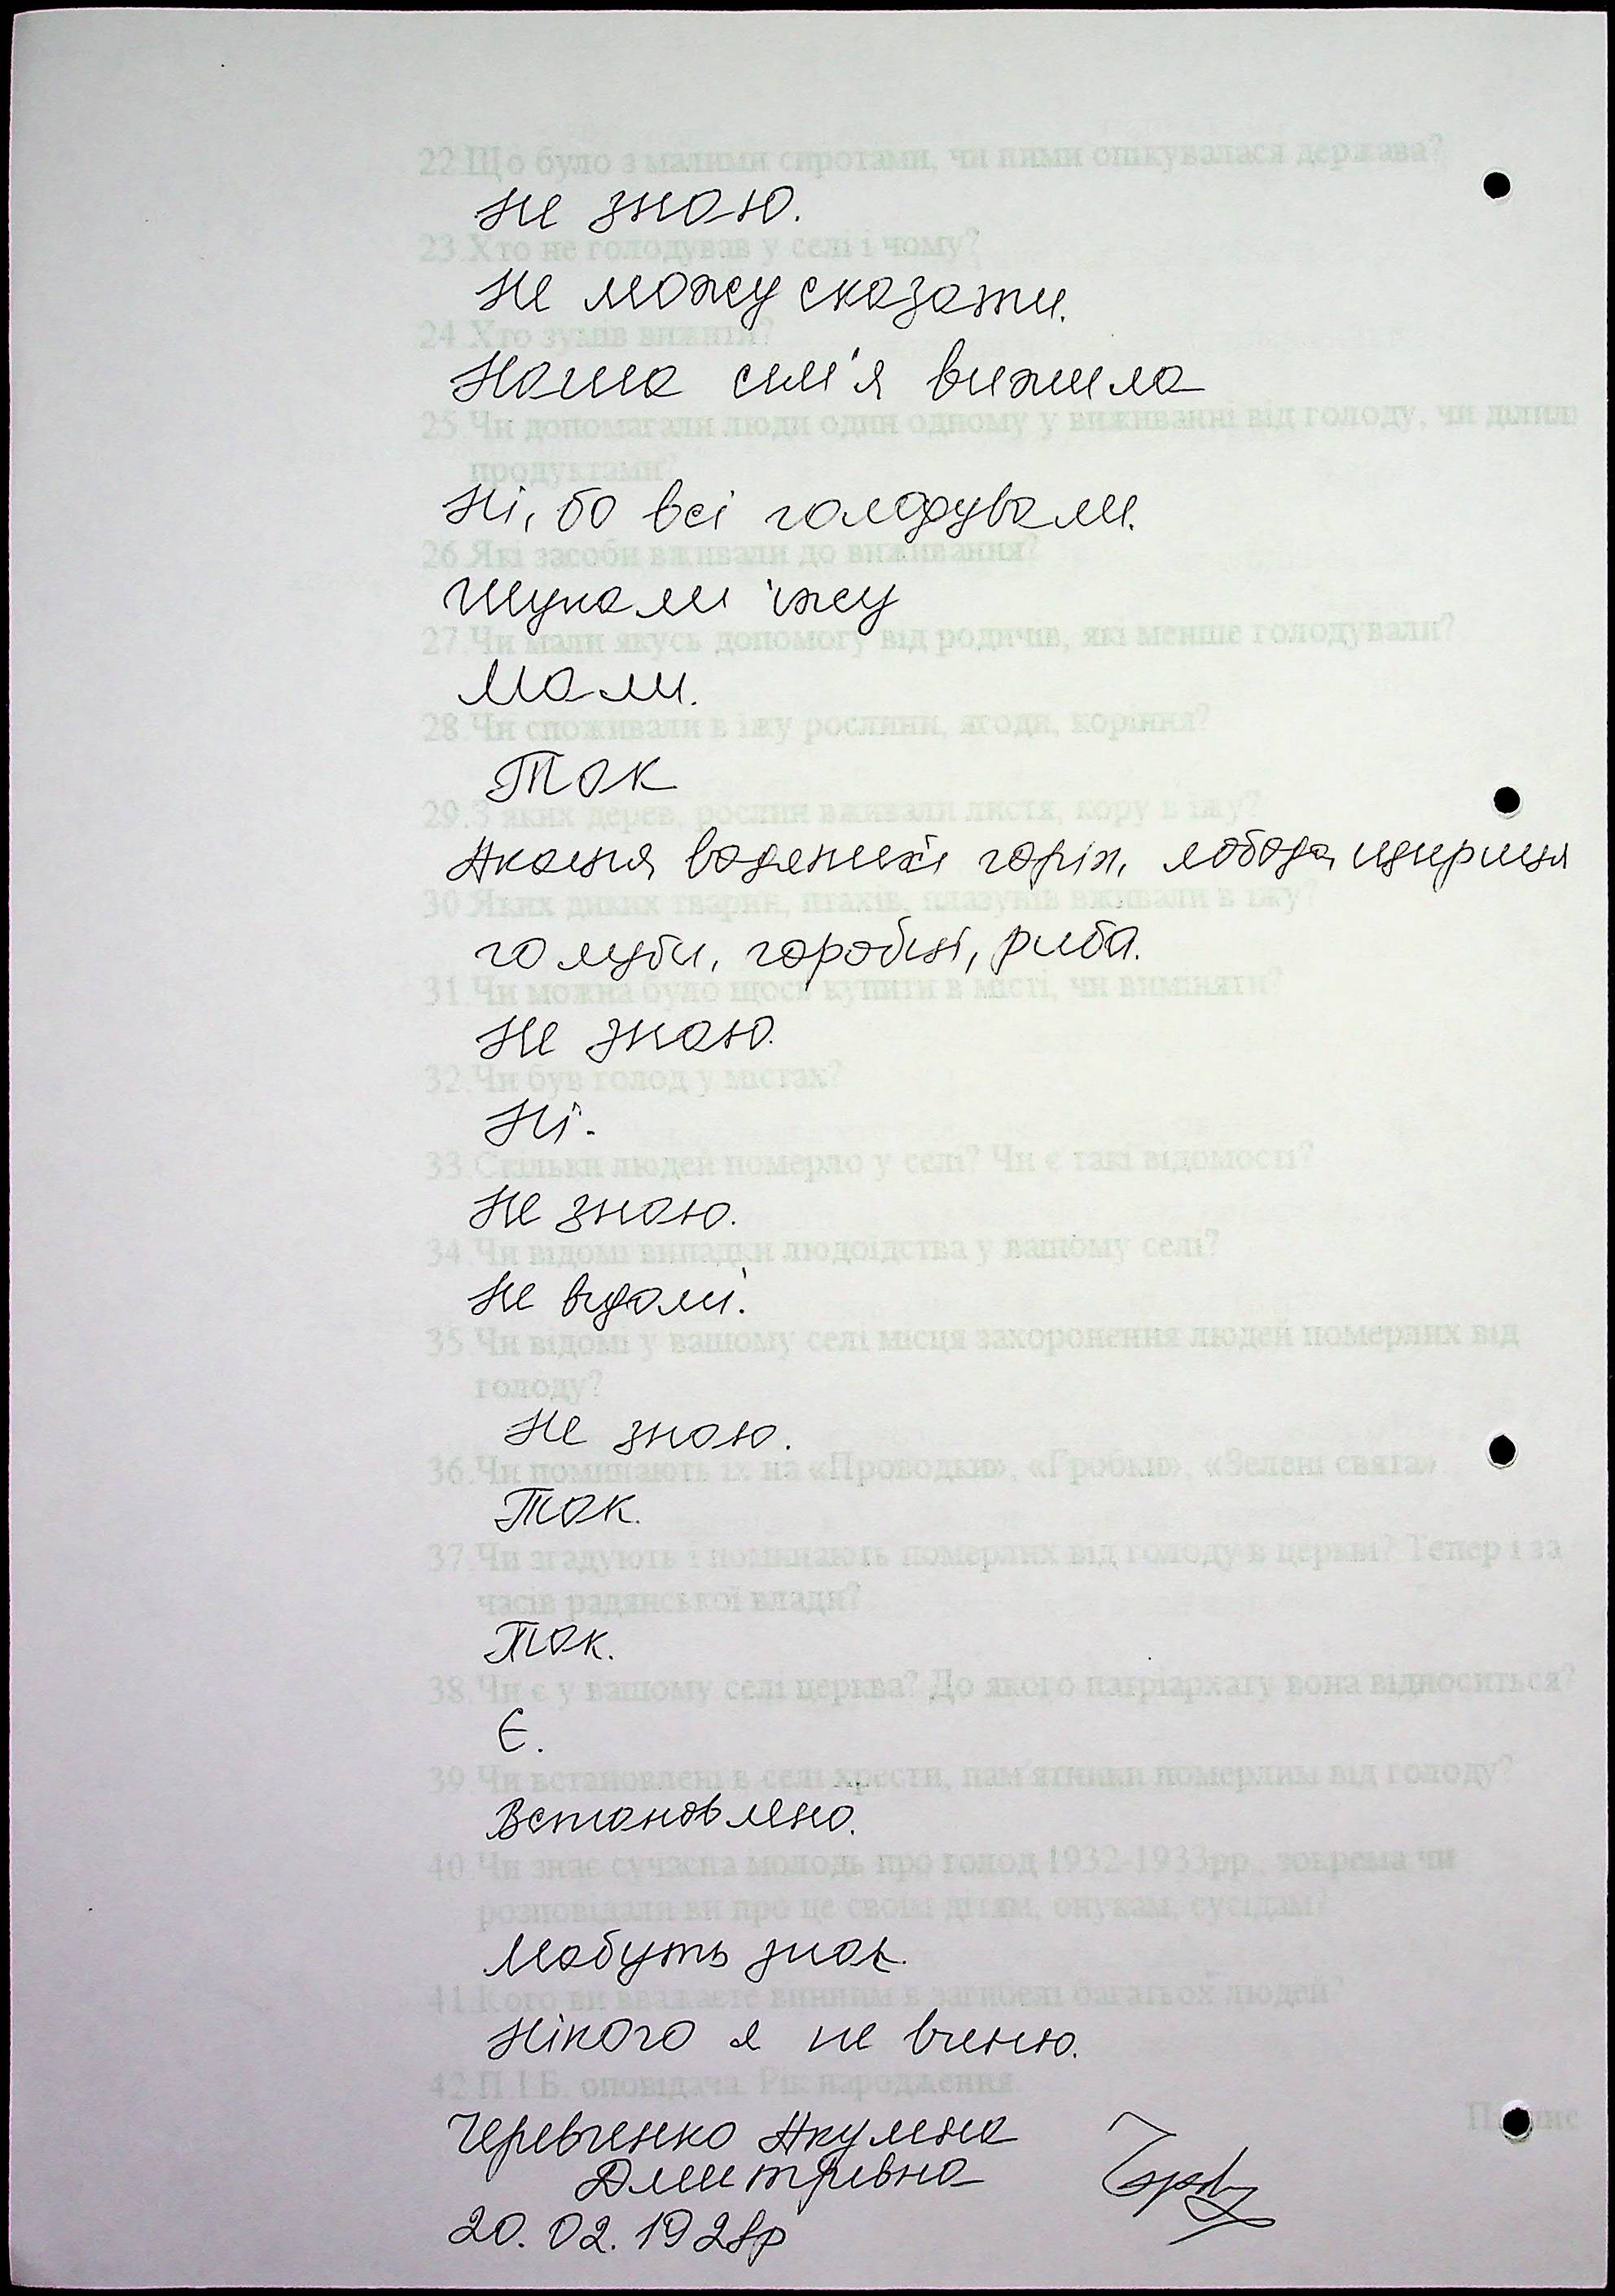 22.Що було з малими сиротами, чи ними опікувалася держава?
Не знаю.
23.Хто не голодував у селі і чому?
Не можу сказати.
24.Хто зумів вижити?
Наша сим'я вижила
25.Чи допомагали люди один одному у виживанні від голоду, чи ділили
продуктами?
Ні, бо всі голодували.
26.Які засоби вживали до виживання?
Шукали їжу
27.Чи мали якусь допомогу від родичів, які менше голодували?
Мали.
28.Чи споживали в їжу рослини, ягоди, коріння?
Так
29.З яких дерев, рослин вживали листя, кору в їжу?
Акація, горіх, лобода, щириця
30.Яких диких тварин, птахів, плазунів вживали в їжу?
голуби, горобці, риба.
31.Чи можна було щось купити в місті, чи виміняти?
Не знаю.
32.Чи був голод у містах?
Ні.
33.Скільки людей померло у селі? Чи є такі відомості?
Не знаю.
34.Чи відомі випадки людоїдства у вашому селі?
Не відомі.
35.Чи відомі у вашому селі місця захоронення людей померлих від
голоду?
Не знаю.
36.Чи поминають їх на «Проводки», «Гробки», «Зелені свята»
Так.
37.Чи згадують і поминають померлих від голоду в церкві? Тепер і за
часів радянської влади?
Так.
38.Чи є у вашому селі церква? До якого патріархату вона відноситься?
Є.
39.Чи встановлені в селі хрести, пам'ятники померлим від голоду?
Встановлено.
40.Чи знає сучасна молодь про голод 1932-1933рр., зокрема чи
розповідали ви про це своїм дітям, онукам, сусідам?
Мабуть знає.
41.Кого ви вважаєте винним в загибелі багатьох людей?
Нікого я не виню.
42.П.І.Б. оповідача. Рік народження.
Підпис
Черевченко Акулина
Дмитрівна
20.02.1928р